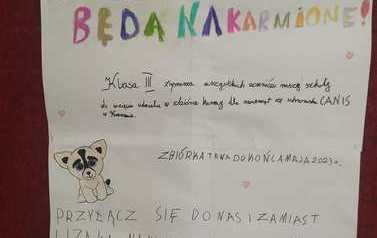 BĘDĄ NAKARMIONE!
Klasa III zaprasza wszystkich uczniów naszej szkoły
do wzięcia udziału w zbiórce karmy dla zwierząt ze schroniska CANIS
w
ZBIÓRKA TRWA DO KOŃCA MAJA 2023 r.
PRZYŁĄCZ SIĘ DO NAS I ZAMIAST